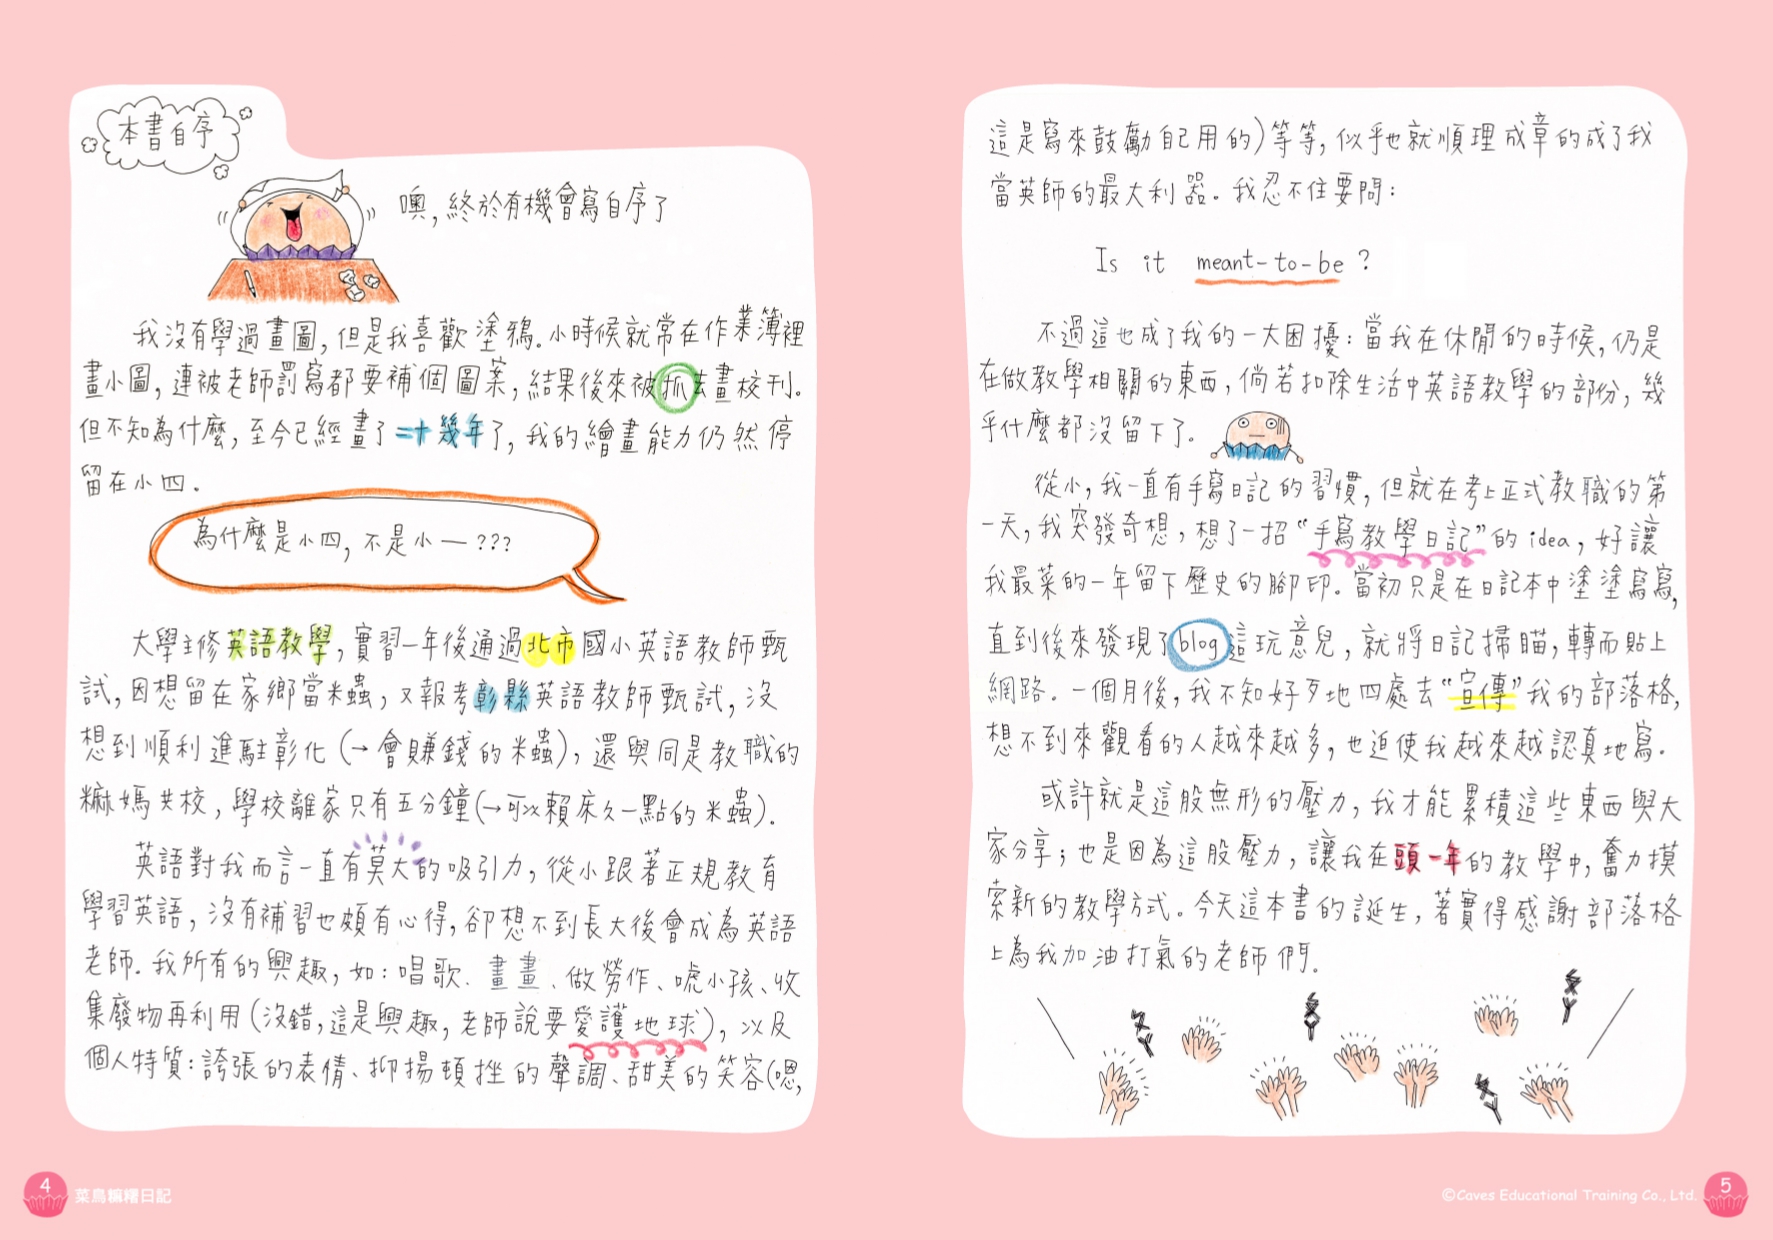 本書自序
噢,終於有機會寫自序了
我沒有學過畫圖,但是我喜歡塗鴉.小時候就常在作業簿裡
畫小圖,連被老師罰寫都要補個圖案,結果後來被抓去畫校刊.
但不知為什麼,至今已經畫了二十幾年了,我的繪畫能力仍然停
留在小四.
為什麼是小四,不是小一???
大學主修英語教學,實習一年後通過北市國小英語教師甄
試,因想留在家鄉當米蟲,又報考彰縣英語教師甄試,沒
想到順利進駐彰化(→會賺錢的米蟲),還與同是教職的
麻媽共校,學校離家只有五分鐘(→可以賴床久一點的米蟲).
英語對我而言一直有莫大的吸引力,從小跟著正規教育
學習英語,沒有補習也頗有心得,卻想不到長大後會成為英語
老師.我所有的興趣,如:唱歌、畫畫、做勞作、唬小孩、收
集廢物再利用(沒錯,這是興趣,老師說要愛護地球),以及
個人特質:誇張的表情、抑揚頓挫的聲調、甜美的笑容(嗯,
4
菜鳥編糌日記
這是寫來鼓勵自己用的)等等,似乎也就順理成章的成了我
當英師的最大利器。我忍不住要問:
Is it meant-to-be ?
不過這也成了我的一大困擾:當我在休閒的時候,仍是
在做教學相關的東西,倘若扣除生活中英語教學的部份,幾
乎什麼都沒留下了。
從小,我一直有手寫日記的習慣,但就在考上正式教職的第
一天,我突發奇想,想了一招"手寫教學日記"的 idea,好讓
我最菜的一年留下歷史的腳印。當初只是在日記本中塗塗寫寫,
直到後來發現了blog這玩意兒,就將日記掃瞄,轉而貼上
網路.一個月後,我不知好歹地四處去"宣傳"我的部落格,
想不到來觀看的人越來越多,也迫使我越來越認真地寫.
或許就是這股無形的壓力,我才能累積這些東西與大
家分享;也是因為這股壓力,讓我在頭一年的教學中,奮力摸
索新的教學方式。今天這本書的誕生,著實得感謝部落格
上為我加油打氣的老師們.
©Caves Educational Training Co., Ltd.
5